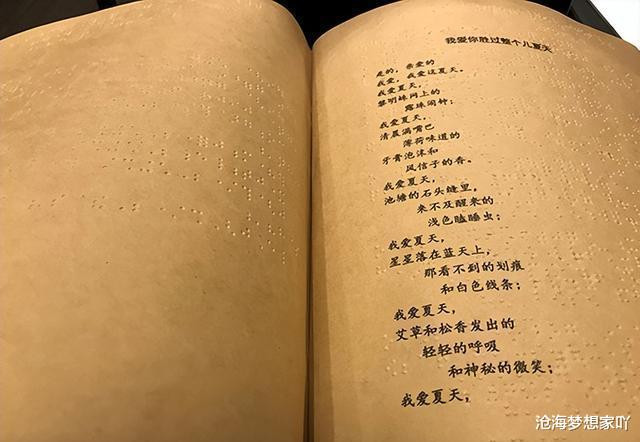 我爱你胜过整个儿夏天
是的，亲爱的
我爱，我爱这夏天。
我爱夏天，
黎明蛛网上的
露珠闹钟；
我爱夏天，
清晨满嘴巴
薄荷味道的
牙膏泡沫和
风信子的香。
我爱夏天，
池塘的石头缝里，
来不及醒来的
浅色瞌睡虫；
我爱夏天，
星星落在蓝天上，
那看不到的划痕
和白色线条；
我爱夏天，
艾草和松香发出的
轻轻的呼吸
和神秘的微笑；
我爱夏天，
沧海梦想家吖